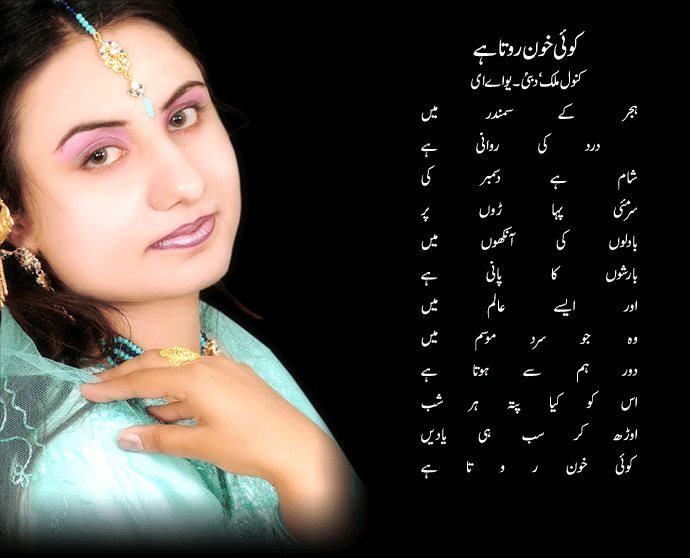 کوئی خون روتا ہے
کنول ملک، دبئی۔ یو اے ای
ہجر کے سمندر میں
درد کی روانی ہے
شام ہے دسمبر کی
سرمئی پہا ڑوں پر
بادلوں کی آنکھوں میں
بارشوں کا پانی ہے
اور ایسے عالم میں
وہ جو سرد موسم میں
دور ہم سے ہوتا ہے
اس کو کیا پتہ ہر شب
اوڑھ کر سب ہی یادیں
کوئی خون ر و تا ہے